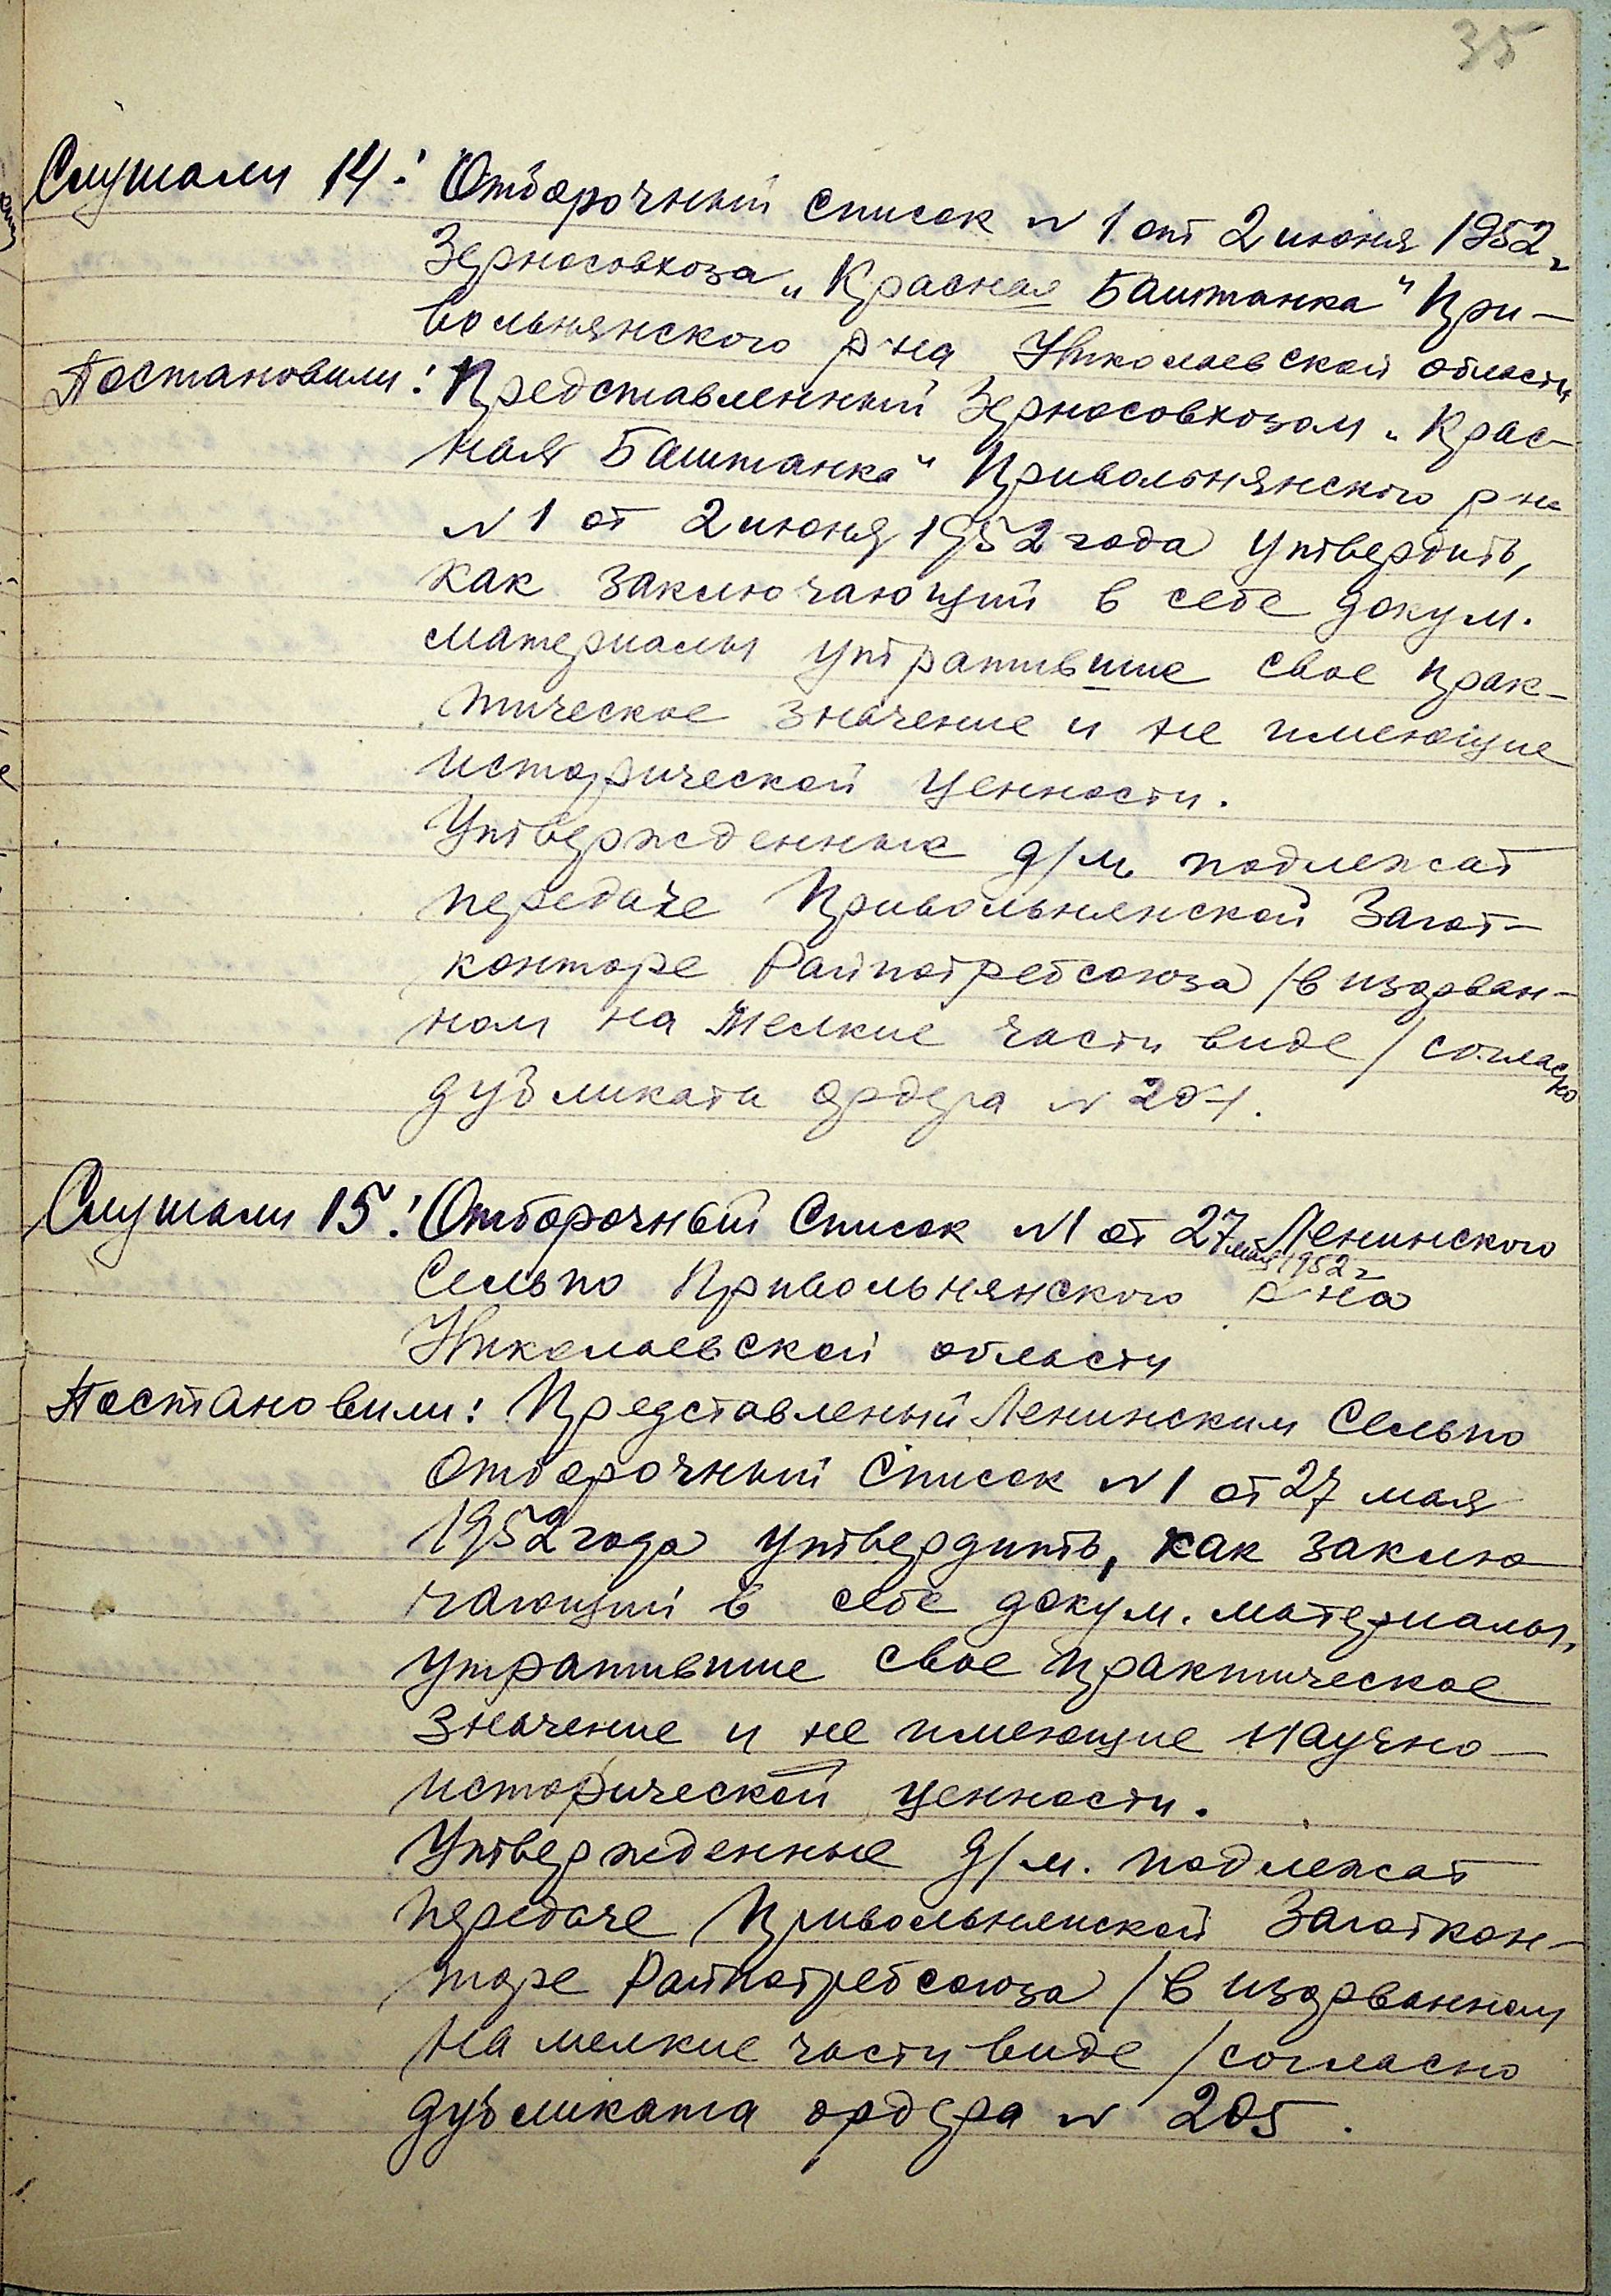 35
Слушали 14: Отборочный список N 1 от 2 июня 1952 г
Зерносовхоза „Красная Баштанка" При-
вольнянского р-на Николаевской области
Постановили: Представленный Зерносовхозом „Крас-
ная Баштанка" Привольнянского р-на
N 1 от 2 июня 1952 года утвердить,
как заключающий в себе докум.
материалы утратившие свое прак-
тическое значение и не имеющие
исторической ценности.
Утвержденные д/м. подлежат
передаче Привольнянской Загот-
конторе Райпотребсоюза /в изорван-
ном на мелкие части виде/ согласно
дубликата ордера N 204.
Слушали 15: Отборочный Список N 1 от 27 мая 1952 г Ленинского
Сельпо Привольнянского р-на
Николаевской области
Постановили: Представленый Ленинским Сельпо
Отборочный Список N 1 от 27 мая
1952 года утвердить, как заклю
чающий в себе докум. материалы,
утратившие свое практическое
значение и не имеющие научно-
исторической ценности.
Утвержденные д/м. подлежат
передаче Привольнянской Заготкон-
торе Райпотребсоюза /в изорванном
на мелкие части виде/ согласно
дубликата ордера N 205.